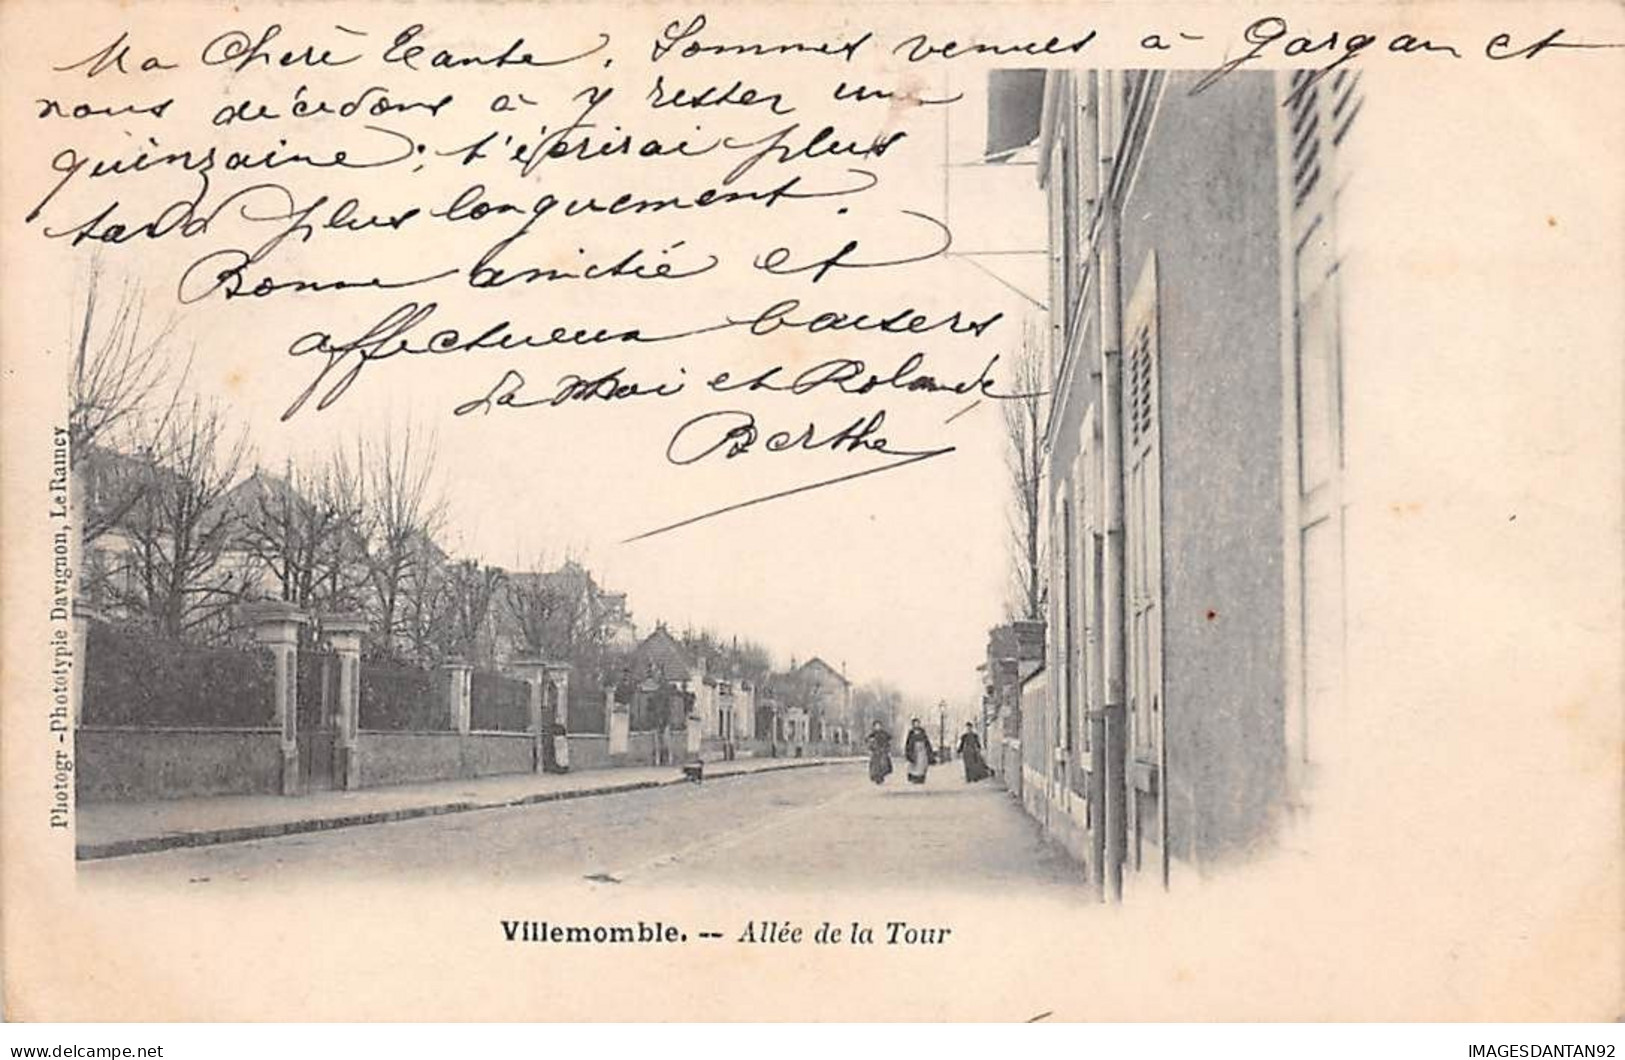 Ma Chère Tante. Sommes venues à Gargan et
nous décidons à y rester une
quinzaine; t'écrirai plus
tard plus longuement.
Bonne amitié et
affectueux baisers
de moi et Rolande
Berthe
Photogr-Phototypie Davignon, Le Raincy
Villemomble. -- Allée de la Tour
delcampe.net
IMAGESDANTAN92